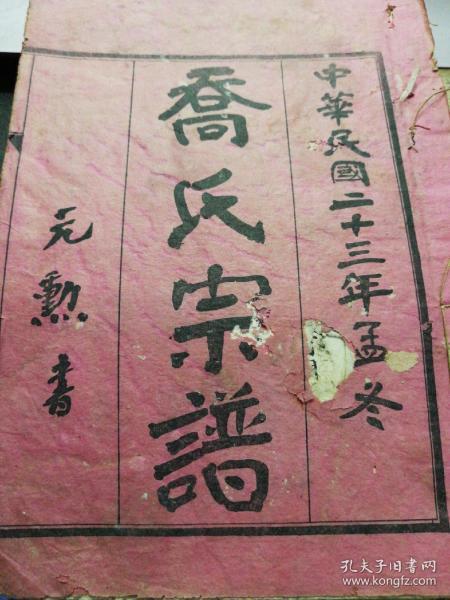 中華民國二十三年孟冬
喬氏宗譜
元勲書
孔夫子旧书网
www.kongfz.com